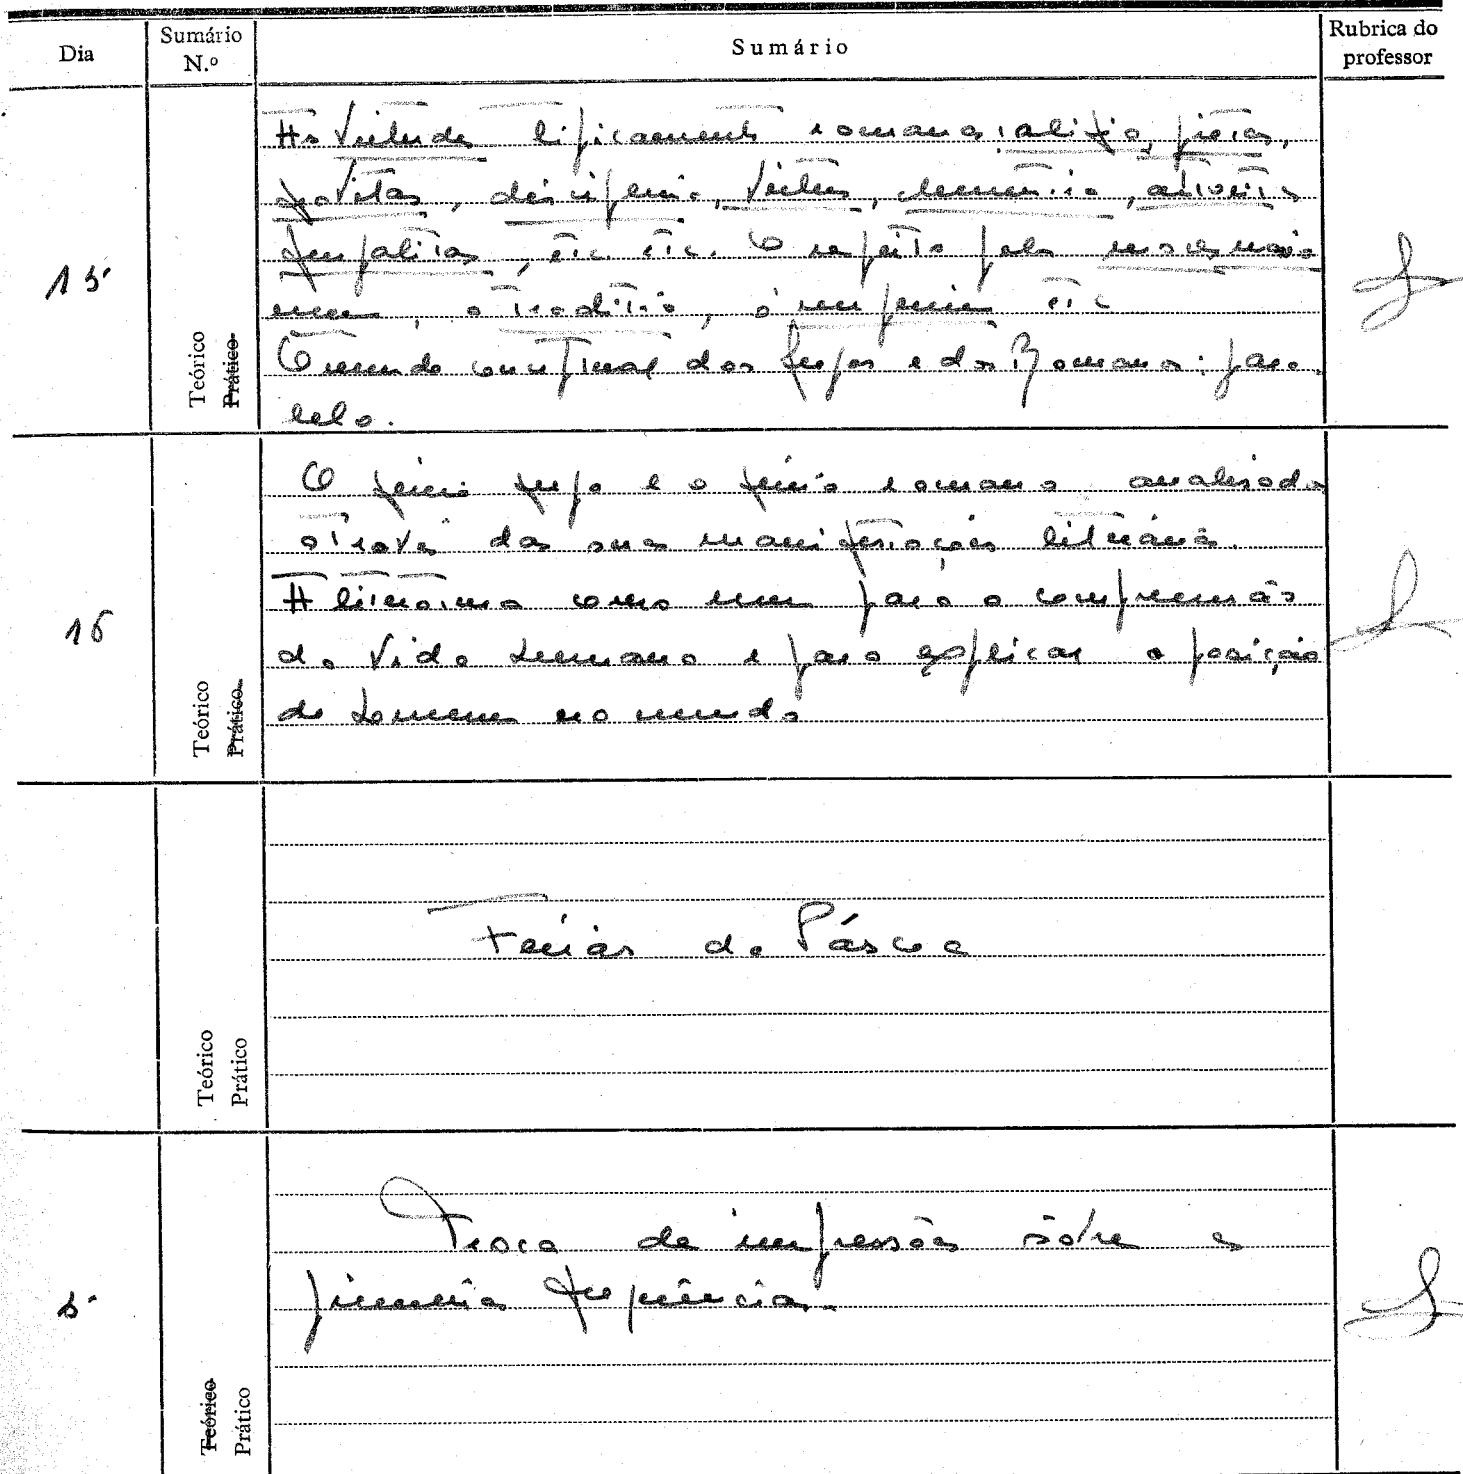 Dia
Sumário
N.º
Sumário
Rubrica do
professor
15
Teórico
Prático
As virtudes tipicamente romanas: religio, pietas,
gravitas, disciplina, virtus, clementia,
frugalitas, etc. etc. O respeito pelo mos maio
rum, a tradição, o imperium etc
O mundo conceptual dos gregos e dos Romanos: para
lelo.
16
Teórico
Prático
O génio grego e o génio romano analisados
através das suas manifestações literárias.
A literatura como meio para a compreensão
da vida humana e para explicar a posição
do homem no mundo
Teórico
Prático
Férias da Páscoa
Teórico
Prático
Troca de impressões sôbre a
primeira frequência.